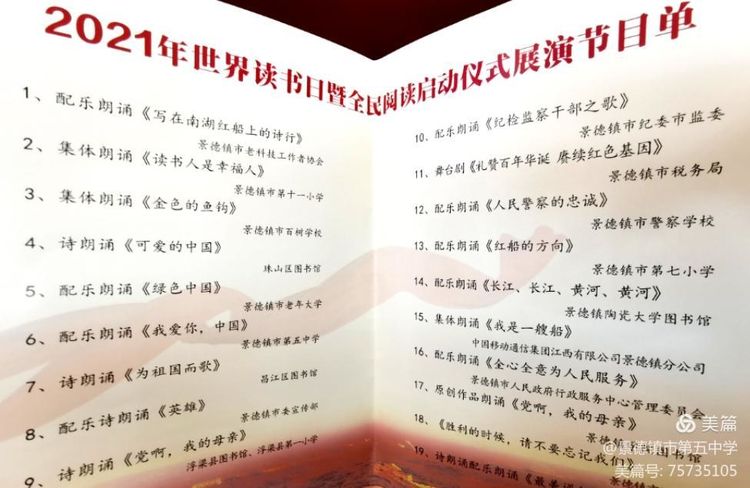 2021年世界读书日暨全民阅读启动仪式展演节目单
1、配乐朗诵《写在南湖红船上的诗行》
景德镇市老科技工作者协会
2、集体朗诵《读书人是幸福人》
景德镇市第十一小学
3、集体朗诵《金色的鱼钩》
景德镇市百树学校
4、诗朗诵《可爱的中国》
珠山区图书馆
5、配乐朗诵《绿色中国》
景德镇市老年大学
6、配乐朗诵《我爱你,中国》
景德镇市第五中学
7、诗朗诵《为祖国而歌》
昌江区图书馆
8、配乐诗朗诵《英雄》
景德镇市委宣传部
9、诗朗诵《党啊,我的母亲》
浮梁县图书馆、浮梁县第一小学
10、配乐朗诵《纪检监察干部之歌》
景德镇市纪委市监委
11、舞台剧《礼赞百年华诞 赓续红色基因》
景德镇市税务局
12、配乐朗诵《人民警察的忠诚》
景德镇市警察学校
13、配乐朗诵《红船的方向》
景德镇市第七小学
14、配乐朗诵《长江、长江、黄河、黄河》
景德镇陶瓷大学图书馆
15、集体朗诵《我是一艘船》
中国移动通信集团江西有限公司景德镇分公司
16、配乐朗诵《全心全意为人民服务》
景德镇市人民政府行政服务中心管理委员会
17、原创作品朗诵《党啊,我的母亲》
18、《胜利的时候,请不要忘记我们》
图书馆
19、诗朗诵配乐朗诵《最美
美篇
@景德镇市第五中学
美篇号: 75735105